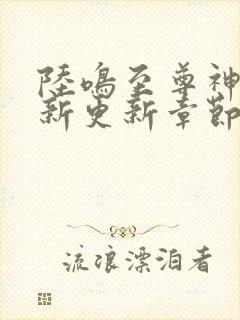 陸鳴至尊神
新更新章節
流浪漂泊者